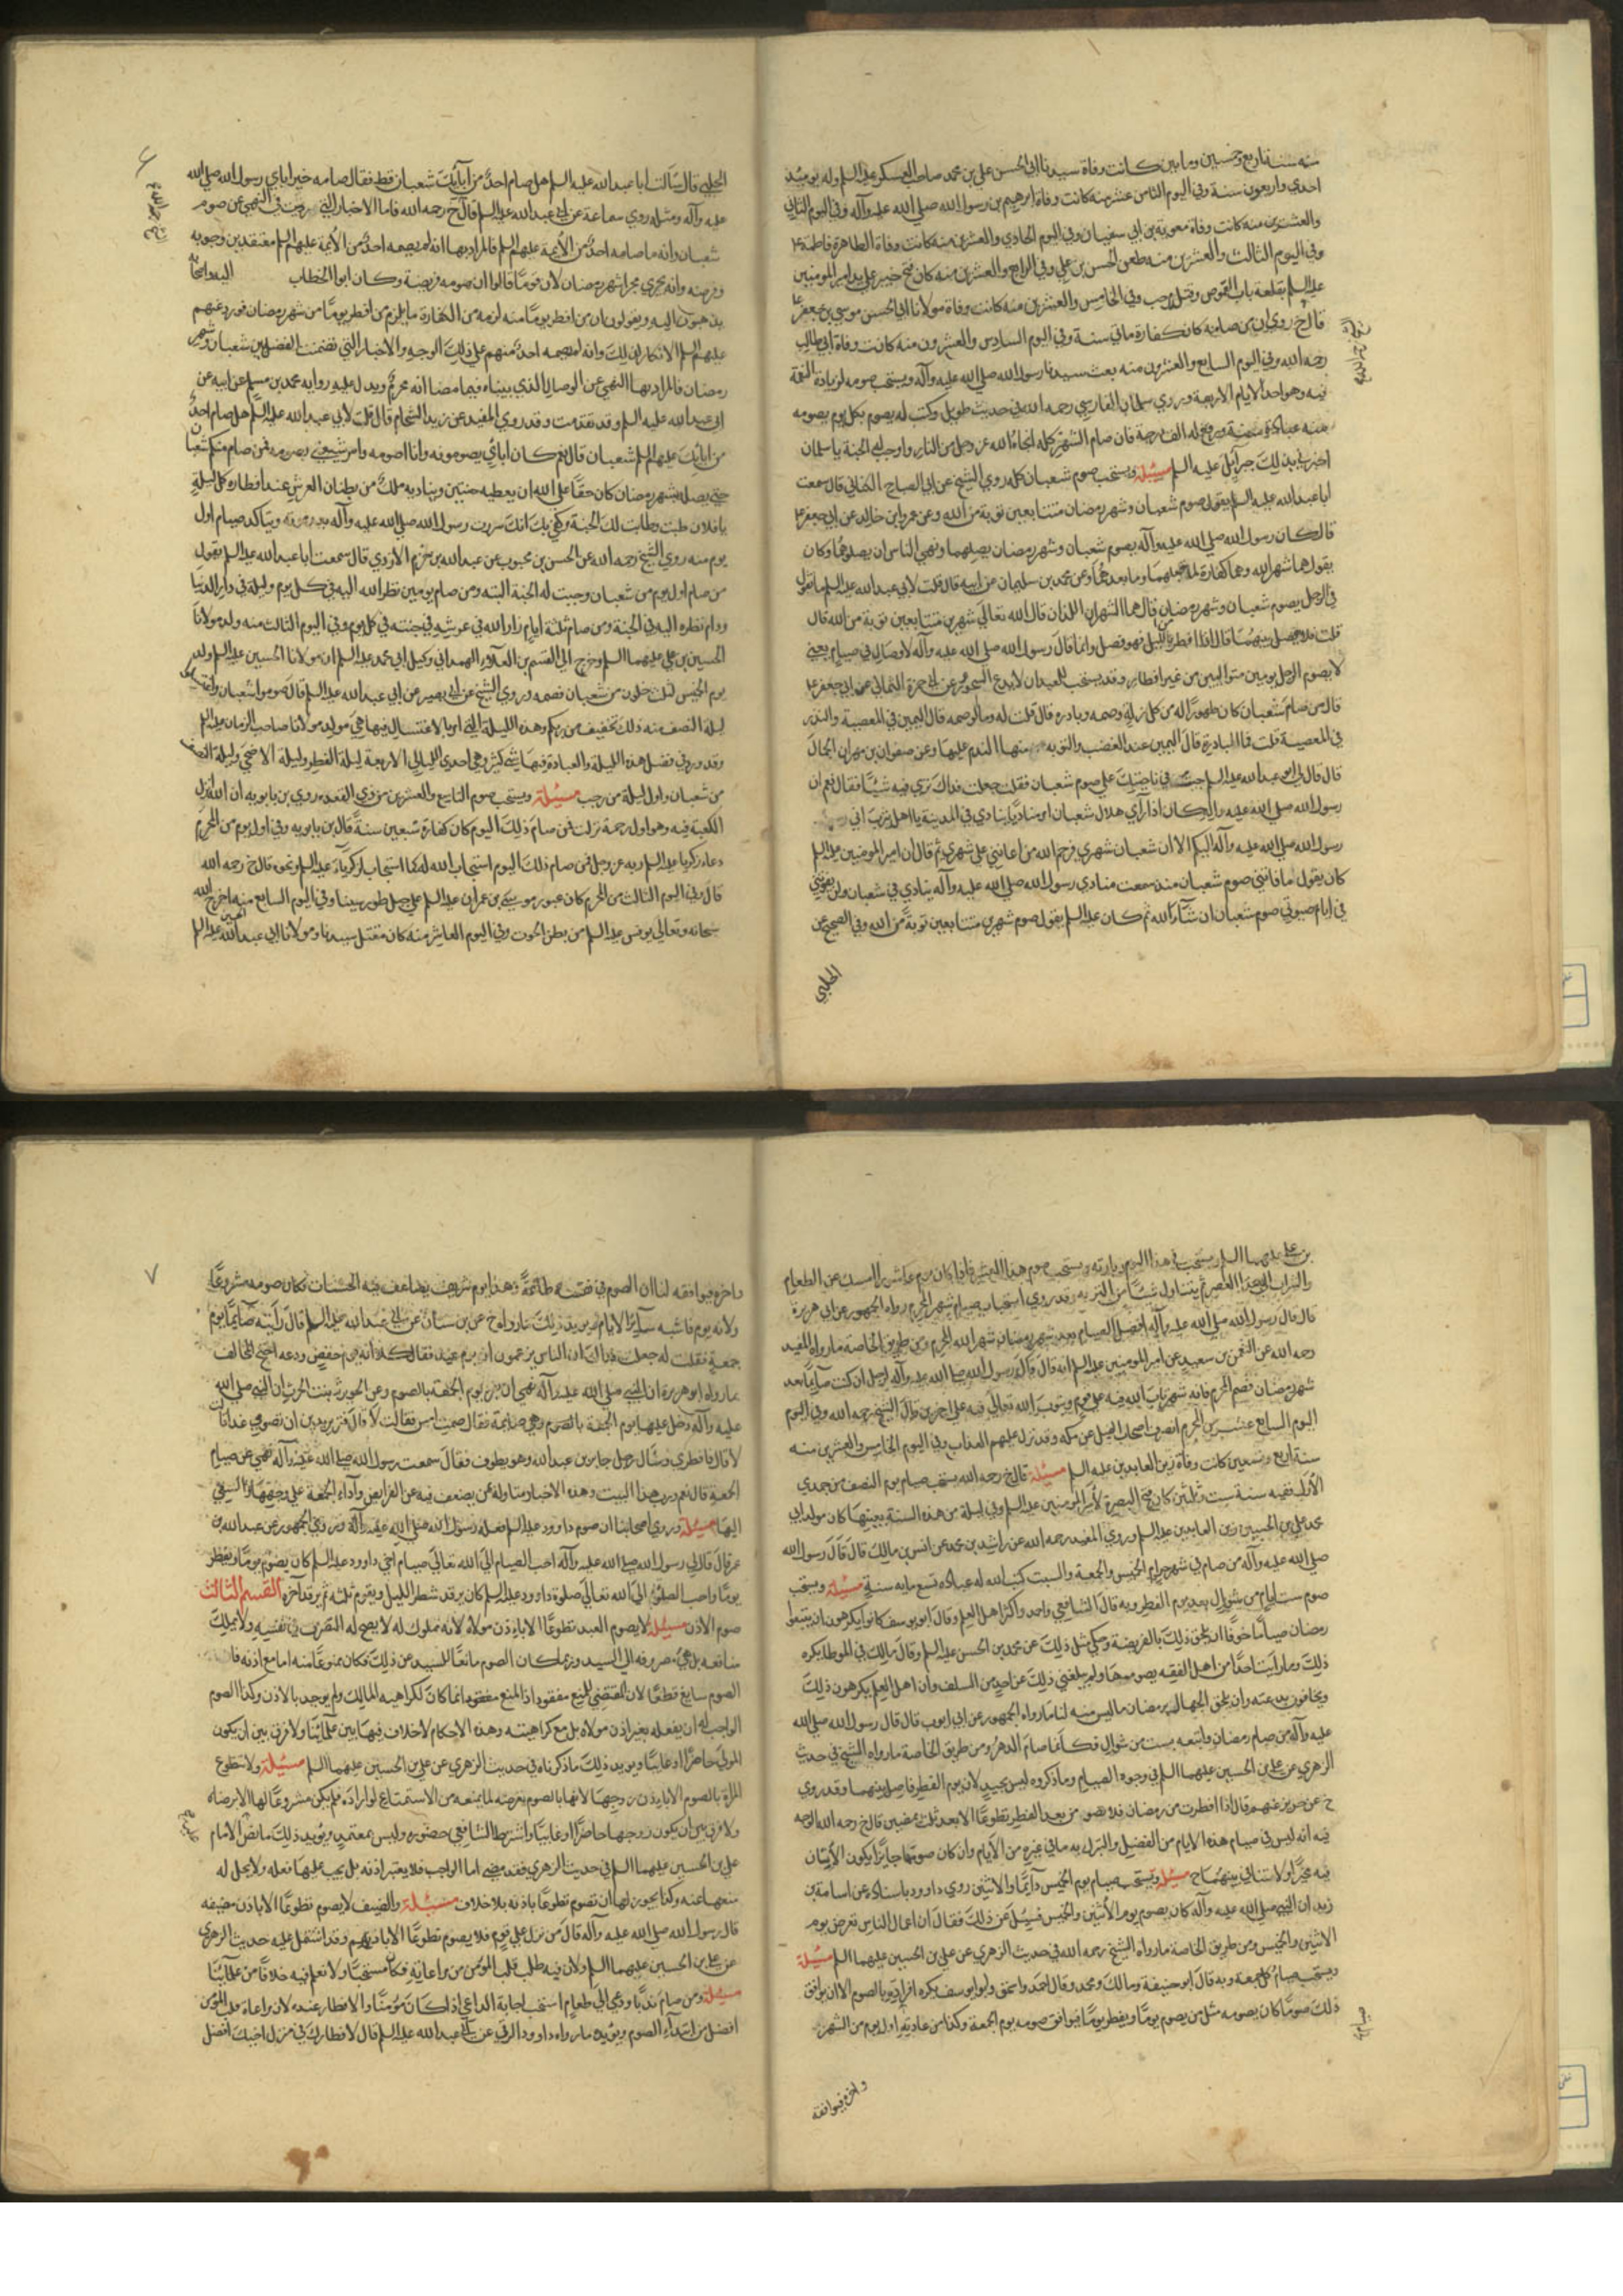 سنه سنة اربع وخمسين ومايتين كانت وفاة سيدنا ابي الحسن علي بن محمد صاحب العسكر عليه السلم وله يومئذ
احدي واربعون سنة وفي اليوم الثامن عشر منه كانت وفاة ابرهيم بن رسول الله صلي الله عليه وآله وفي اليوم الثاني
والعشرين منه كانت وفاة معوية بن ابي سفيان وفي اليوم الحادي والعشرين منه كانت وفاة الطاهرة فاطمة ع
وفي اليوم الثالث والعشرين منه طعن الحسن بن علي وفي الرابع والعشرين منه كان فتح خيبر علي يد امير المومنين
عليه السلم بقلعه باب القوص وقتل مرحب وفي الخامس والعشرين منه كانت وفاة مولانا ابي الحسن موسي بن جعفر ع
قال خ روي ان من صامه كان كفارة مائتي سنة وفي اليوم السادس والعشرون منه كانت وفاة ابي طالب
رحمه الله وفي اليوم السابع والعشرون منه بعث سيدنا رسول الله صلي الله عليه وآله ويستحب صومه لزيادة النعمة
فيه وهو احد الايام الاربعة وروي سلمان الفارسي رحمه الله في حديث طويل وكتب له بصوم كل يوم يصومه
منه عبادة سنة ورفع له الف درجة فان صام الشهر كله انجاه الله عز وجل من النار واوجب له الجنة يا سلمان
اخبرني بذلك جبرآئيل عليه السلم مسئلة ويستحب صوم شعبان كله روي الشيخ عن ابي الصباح الكناني قال سمعت
ابا عبد الله عليه السلم يقول صوم شعبان وشهر رمضان متتابعين توبة من الله وعن عمرو بن خالد عن ابي جعفر ع
قال كان رسول الله صلي الله عليه وآله يصوم شعبان وشهر رمضان يصلهما ونهي الناس ان يصلوهما وكان
يقول هما شهر الله وهما كفارة لما قبلهما وما بعدهما وعن محمد بن سليمان عن ابيه قال قلت لابي عبد الله عليه السلم ما تقول
في الرجل يصوم شعبان وشهر رمضان قال هما الشهران اللذان قال الله تعالي شهرين متتابعين توبة من الله قال
قلت فلا يفصل بينهما قال اذا افطر من الليل فهو فصل وانما قال رسول الله صلي الله عليه وآله لا وصال في صيام يعني
لا يصوم الرجل يومين متواليين من غير افطار وقد يستحب للعبد ان لا يدع السحور وعن ابي حمزة الثمالي عن ابي جعفر ع
قال من صام شعبان كان طهورا له من كل زلة ووصمة وبادرة قال قلت له وما الوصمه قال اليمين في المعصية والنذر
في المعصية قلت فما البادرة قال اليمين عند الغضب والتوبه منها الندم عليها وعن صفوان بن مهران الجمال
قال قال لي ابو عبد الله عليه السلم حث من في ناحيتك علي صوم شعبان فقلت جعلت فداك تري فيه شيئا فقال نعم ان
رسول الله صلي الله عليه وآله كان اذا رآي هلال شعبان امر مناديا ينادي في المدينة يا اهل يثرب اني
رسول الله صلي الله عليه وآله اليكم الا ان شعبان شهري فرحم الله من اعانني علي شهري ثم قال ان امير المومنين عليه السلم
كان يقول ما فاتني صوم شعبان منذ سمعت منادي رسول الله صلي الله عليه وآله ينادي في شعبان ولن يفوتني
في ايام حيوتي صوم شعبان ان شآء الله ثم كان عليه السلم يقول صوم شهرين متتابعين توبة من الله وفي الصحيح عن
الحلبي
٦
الحلبي قال سآلت ابا عبد الله عليه السلم هل صام احد من آبآئك شعبان قط فقال صامه خير ابآي رسول الله صلي الله
عليه وآله ومثله روي سماعة عن ابي عبد الله عليه السلم قال خ رحمه الله فاما الاخبار التي رويت في النهي عن صوم
شعبان وانه ما صامه احد من الآيمة عليهم السلم فالمراد بها انه لم يصمه احد من الايمة عليهم السلم معتقدين وجوبه
وفرضه وانه يجري مجرا شهر رمضان لان قوما قالوا ان صومه فريضة وكان ابو الخطاب واصحابه
يذهبون اليه ويقولون ان من افطر يوما منه لزمه من الكفارة ما يلزم من افطر يوما من شهر رمضان فورد عنهم
عليهم السلم الانكار لذلك وانه لم يصمه احد منهم علي ذلك الوجه والاخبار التي تضمنت الفصل بين شعبان وشهر
رمضان فالمراد بها النهي عن الوصال الذي بيناه فيما مضا انه محرم ويدل عليه روايه محمد بن مسلم عن ابيه عن
ابي عبد الله عليه السلم وقد تقدمت وقد روي المفيد عن زيد الشحام قال قلت لابي عبد الله عليه السلم هل صام احد
من ابائك عليهم السلم شعبان قال نعم كان ابآئي يصومونه وانا اصومه وامر شيعتي بصومه فمن صام منكم شعبان
حتي يصله بشهر رمضان كان حقا علي الله ان يعطيه جنتين ويناديه ملك من بطنان العرش عند افطاره كل ليلة
يا فلان طبت وطابت لك الجنة وكفي بك انك سررت رسول الله صلي الله عليه وآله بعد موته ويتاكد صيام اول
يوم منه روي الشيخ رحمه الله عن الحسن بن محبوب عن عبد الله بن حزم الازدي قال سمعت ابا عبد الله عليه السلم يقول
من صام اول يوم من شعبان وجبت له الجنة البته ومن صام يومين نظر الله اليه في كل يوم وليلة في دار الدنيا
ودام نظره اليه في الجنة ومن صام ثلثة ايام زار الله في عرشه في جنته في كل يوم وفي اليوم الثالث منه ولد مولانا
الحسين بن علي عليهما السلم وخرج الي القسم بن العلاء الهمداني وكيل ابي محمد عليه السلم ان مولانا الحسين عليه السلم ولد
يوم الخميس لثلث خلون من شعبان فصمه وروي الشيخ عن ابي بصير عن ابي عبد الله عليه السلم قال صوموا شعبان واغتسلوا
ليلة النصف منه ذلك تخفيف من ربكم وهذه الليلة التي امرنا بالاغتسال فيها هي مولد مولانا صاحب الزمان عليه السلم
وقد ورد في فضل هذه الليلة والعبادة فيها شئ كثير وهي احدي الليالي الاربعة ليلة الفطر وليلة الاضحي وليلة النصف
من شعبان واول ليلة من رجب مسئلة ويستحب صوم التاسع والعشرين من ذي القعده روي بن بابويه ان الله انزل
الكعبة فيه وهو اول رحمة نزلت فمن صام ذلك اليوم كان كفارة سبعين سنة قال بن بابويه وفي اول يوم من المحرم
دعاء زكريا عليه السلم ربه عز وجل فمن صام ذلك اليوم استجاب الله له كما استجاب لزكريآء عليه السلم ونحوه قال خ رحمه الله
قال وفي اليوم الثالث من المحرم كان عبور موسي بن عمران عليه السلم علي جبل طور سينا وفي اليوم السابع منه اخرج الله
سبحانه وتعالي يونس عليه السلم من بطن الحوت وفي اليوم العاشر منه كان مقتل سيدنا ومولانا ابي عبد الله الحسين
بن علي عليهما السلم ويستحب في هذا اليوم زيارته ويستحب صوم هذا العشر فاذا كان يوم عاشورا امسك عن الطعام
والشراب الي بعد العصر ثم يتناول شيئا من التربه وقد روي استحباب صيام شهر المحرم رواه الجمهور عن ابي هريرة
قال قال رسول الله صلي الله عليه وآله افضل الصيام بعد شهر رمضان شهر الله المحرم ومن طريق الخاصة ما رواه المفيد
رحمه الله عن النعمن بن سعيد عن امير المومنين عليه السلم انه قال قال رسول الله صلي الله عليه وآله لرجل ان كنت صآيما بعد
شهر رمضان فصم المحرم فانه شهر تاب الله فيه علي قوم ويتوب الله تعالي فيه علي اخرين قال الشيخ رحمه الله وفي اليوم
اليوم السابع عشر من المحرم انصرف اصحاب الفيل عن مكه وقد نزل عليهم العذاب وفي اليوم الخامس والعشرين منه
سنة اربع وتسعين كانت وفاة زين العابدين عليه السلم مسئلة قال خ رحمه الله يستحب صيام يوم النصف من جمدي
الاولي ففيه سنة ست وثلثين كان فتح البصرة لامير المومنين عليه السلم وفي ليلة من هذه السنة بعينها كان مولد ابي
محمد علي بن الحسين زين العابدين عليه السلم وروي المفيد رحمه الله عن راشد بن محمد عن انس بن مالك قال قال رسول الله
صلي الله عليه وآله من صام في شهر حرام الخميس والجمعة والسبت كتب الله له عباده تسع مايه سنة مسئلة ويستحب
صوم ستة ايام من شوال بعد يوم الفطر وبه قال الشافعي واحمد واكثر اهل العلم وقال ابو يوسف كانوا يكرهون ان يتبعوا
رمضان صياما خوفا ان يلحق ذلك بالفريضة وحكي مثل ذلك عن محمد بن الحسن عليه السلم وقال مالك في الموطا يكره
ذلك وما رايت احدا من اهل الفقه يصومها ولم يبلغني ذلك عن احد من السلف وان اهل العلم يكرهون ذلك
ويخافون بدعته وان يلحق الجهال برمضان ما ليس منه لنا ما رواه الجمهور عن ابي ايوب قال قال رسول الله صلي الله
عليه وآله من صيام رمضان واتبعه بست من شوال فكآنما صام الدهر ومن طريق الخاصة ما رواه الشيخ في حديث
الزهري عن علي بن الحسين عليهما السلم في وجوه الصيام وما ذكروه ليس بجيد لان يوم الفطر فاصل بينهما وقد روي
خ عن حريز عنهم قال اذا افطرت من رمضان فلا تصومن بعد الفطر تطوعا الا بعد ثلث يمضين قال خ رحمه الله الوجه
فيه انه ليس في صيام هذه الايام من الفضل والتبرك به ما في غيره من الايام وان كان صومها جايزا يكون الانسان
فيه مخيرا ولا تنافي بينهما ح مسئلة ويستحب صيام يوم الخميس دآيما والاثنين روي داوود باسناده عن اسامة بن
زيد ان النبي صلي الله عليه وآله كان يصوم يوم الاثنين والخميس فسيل عن ذلك فقال ان اعمال الناس تعرض يوم
الاثنين والخميس ومن طريق الخاصة ما رواه الشيخ رحمه الله في حديث الزهري عن علي بن الحسين عليهما السلم مسئلة
ويستحب صيام كل جمعة وبه قال ابو حنيفة ومالك ومحمد وقال احمد واسحق وابو يوسف يكره افراده بالصوم الا ان يوافق
ذلك صوما كان يصومه مثل من يصوم يوما ويفطر يوما فيوافق صومه يوم الجمعة وكذا من عادته اول يوم من الشهر
واخره فيوافقه
٧
واخره فيوافقه لنا ان الصوم في نفسه طاعة وهذا يوم شريف يضاعف فيه الحسنات فكان صومه مشروعا
ولانه يوم فاشبه سآير الايام ويويد ذلك ما رواه خ عن بن سنان عن ابي عبد الله عليه السلم قال رآيته صآيما يوم
جمعة فقلت له جعلت فداك ان الناس يزعمون انه يوم عيد فقال كلا انه يوم خفض ودعه احتج المخالف
بما رواه ابو هريرة ان النبي صلي الله عليه وآله نهي ان يفرد يوم الجمعة بالصوم وعن الحويرثه بنت الحرث ان النبي صلي الله
عليه وآله دخل عليها يوم الجمعة بالصوم وهي صائمة فقال صمت امس فقالت لا قال فتريدين ان تصومي غدا قالت
لا قال فافطري وسآل رجل جابر بن عبد الله وهو يطوف فقال سمعت رسول الله صلي الله عليه وآله نهي عن صيام
الجمعة قال نعم ورب هذا البيت وهذه الاخبار متاولة بمن يضعف فيه عن الفرايض وآداء الجمعة علي وجهها والسعي
اليها مسئلة وروي اصحابنا ان صوم داوود عليه السلم فعله رسول الله صلي الله عليه وآله وروي الجمهور عن عبد الله بن
عمر قال قال لي رسول الله صلي الله عليه وآله احب الصيام الي الله تعالي صيام اخي داوود عليه السلم كان يصوم يوما ويفطر
يوما واحب الصلوة الي الله تعالي صلوة داوود عليه السلم كان يرقد شطر الليل ويقوم ثلثه ثم يرقد آخره القسم الثالث
صوم الاذن مسئلة لا يصوم العبد تطوعا الا باذن مولاه لانه مملوك له لا يصح له التصرف في نفسه ولا يملك
منافعه بل هي مصروفه الي السيد وربما كان الصوم مانعا للسيد عن ذلك فكان ممنوعا منه اما مع اذنه فان
الصوم سايغ قطعا لان المقتضي للمنع مفقود اذ المنع مفقود انما كان لكراهيه المالك ولم يوجد بالاذن وكذا الصوم
الواجب له ان يفعله بغير اذن مولاه بل مع كراهيته وهذه الاحكام لا خلاف فيها بين علمآئنا ولا فرق بين ان يكون
المولي حاضرا او غايبا ويويد ذلك ما ذكرناه في حديث الزهري عن علي بن الحسين عليهما السلم مسئلة ولا تطوع
المرآة بالصوم الا باذن زوجها لانها بالصوم يعرضه لما يمنعه من الاستمتاع لو اراده فلم يكن مشروعا لها الا برضاه
ولا فرق بين ان يكون زوجها حاضرا او غايبا واشترط الشافعي حضوره وليس بمعتمد ويويد ذلك ما نص الامام
علي بن الحسين عليهما السلم في حديث الزهري فقد مضي اما الواجب فلا يعتبر اذنه بل يجب عليها فعله ولا يحل له
منعها عنه وكذا يجوز لها ان تصوم تطوعا باذنه بلا خلاف مسئلة والضيف لا يصوم تطوعا الا باذن مضيفه
قال رسول الله صلي الله عليه وآله قال من نزل علي قوم فلا يصوم تطوعا الا باذنهم وقد اشتمل عليه حديث الزهري
عن علي بن الحسين عليهما السلم ولان فيه طلب قلب المومن من مراعاته فكان مستحبا ولا نعلم فيه خلافا من علمآئنا
مسئلة ومن صام ندبا ودعي الي طعام استحب اجابة الداعي اذا كان مومنا والافطار عنده لان مراعاة قلب المومن
افضل من ابتدآء الصوم ويويده ما رواه داوود الرقي عن ابي عبد الله عليه السلم قال لافطارك في منزل اخيك افضل